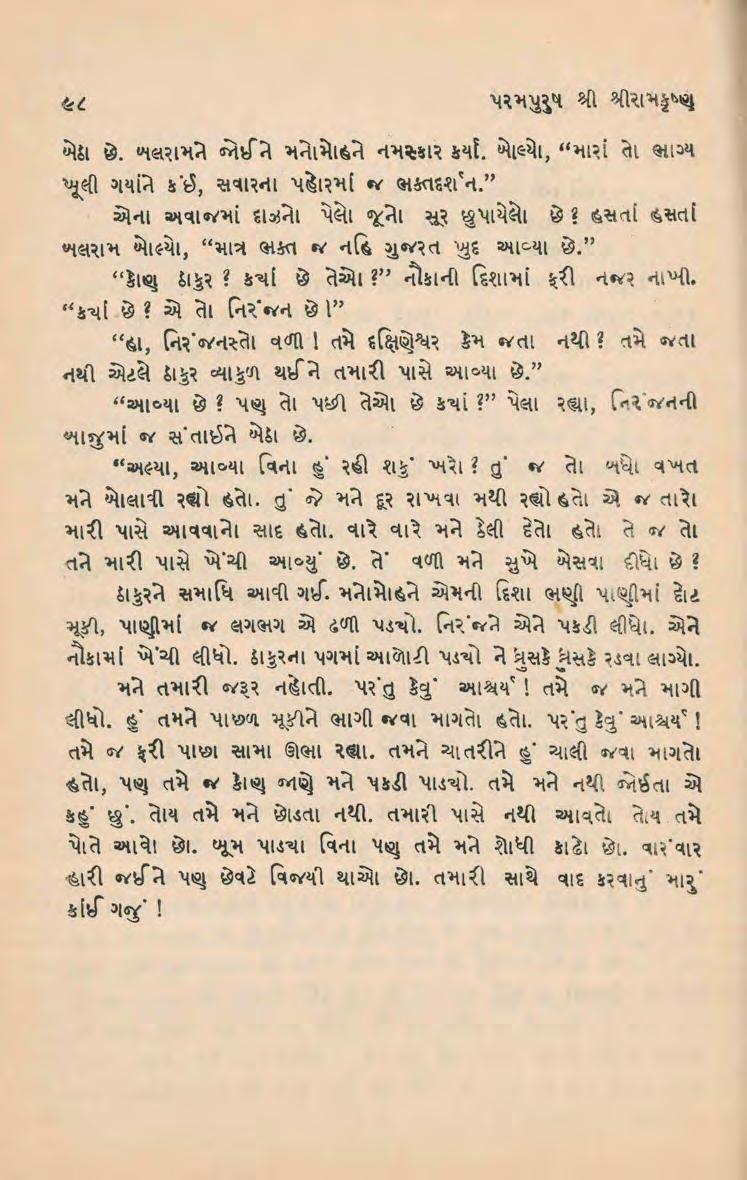 ૯૮ પરમપુરુષ શ્રી શ્રીરામકૃષ્ણ
બેઠા છે. બલરામને જોઈને મનોમોહને નમસ્કાર કર્યા. બોલ્યો, “મારાં તો ભાગ્ય
ખૂલી ગયાંને કંઈ, સવારના પહોરમાં જ ભક્તદર્શન.”
એના અવાજમાં દાઝનો પેલો જૂનો સૂર છુપાયેલો છે ? હસતાં હસતાં
બલરામ બોલ્યો, “માત્ર ભક્ત જ નહિ ગુજરત ખુદ આવ્યા છે.”
“કોણ ઠાકુર ? ક્યાં છે તેઓ ?” નૌકાની દિશામાં ફરી નજર નાખી.
“ક્યાં છે ? એ તો નિરંજન છે !”
“હા, નિરંજનસ્તો વળી ! તમે દક્ષિણેશ્વર કેમ જતા નથી ? તમે જતા
નથી એટલે ઠાકુર વ્યાકુળ થઈને તમારી પાસે આવ્યા છે.”
“આવ્યા છે ? પણ તો પછી તેઓ છે ક્યાં ?” પેલા રહ્યા, નિરંજનની
બાજુમાં જ સંતાઈને બેઠા છે.
“અલ્યા, આવ્યા વિના હું રહી શકું ખરો ? તું જ તો બધો વખત
મને બોલાવી રહ્યો હતો. તું જે મને દૂર રાખવા મથી રહ્યો હતો એ જ તારો
મારી પાસે આવવાનો સાદ હતો. વારે વારે મને ઠેલી દેતો હતો તે જ તો
તને મારી પાસે ખેંચી આવ્યું છે. તેં વળી મને સુખે બેસવા દીધો છે ?
ઠાકુરને સમાધિ આવી ગઈ. મનોમોહને એમની દિશા ભણી પાણીમાં દોટ
મૂકી, પાણીમાં જ લગભગ એ ઢળી પડ્યો. નિરંજને એને પકડી લીધો. એને
નૌકામાં ખેંચી લીધો. ઠાકુરના પગમાં આળોટી પડ્યો ને ધ્રુસકે ધ્રુસકે રડવા લાગ્યો.
મને તમારી જરૂર નહોતી. પરંતુ કેવું આશ્ચર્ય ! તમે જ મને માગી
લીધો. હું તમને પાછળ મૂકીને ભાગી જવા માગતો હતો. પરંતુ કેવું આશ્ચર્ય !
તમે જ ફરી પાછા સામા ઊભા રહ્યા. તમને ચાતરીને હું ચાલી જવા માગતો
હતો, પણ તમે જ કોણ જાણે મને પકડી પાડ્યો. તમે મને નથી જોઈતા એ
કહું છું. તોય તમે મને છોડતા નથી. તમારી પાસે નથી આવતો તોય તમે
પોતે આવો છો. બૂમ પાડ્યા વિના પણ તમે મને શોધી કાઢો છો. વારંવાર
હારી જઈને પણ છેવટે વિજયી થાઓ છો. તમારી સાથે વાદ કરવાનું મારું
કાંઈ ગજું !